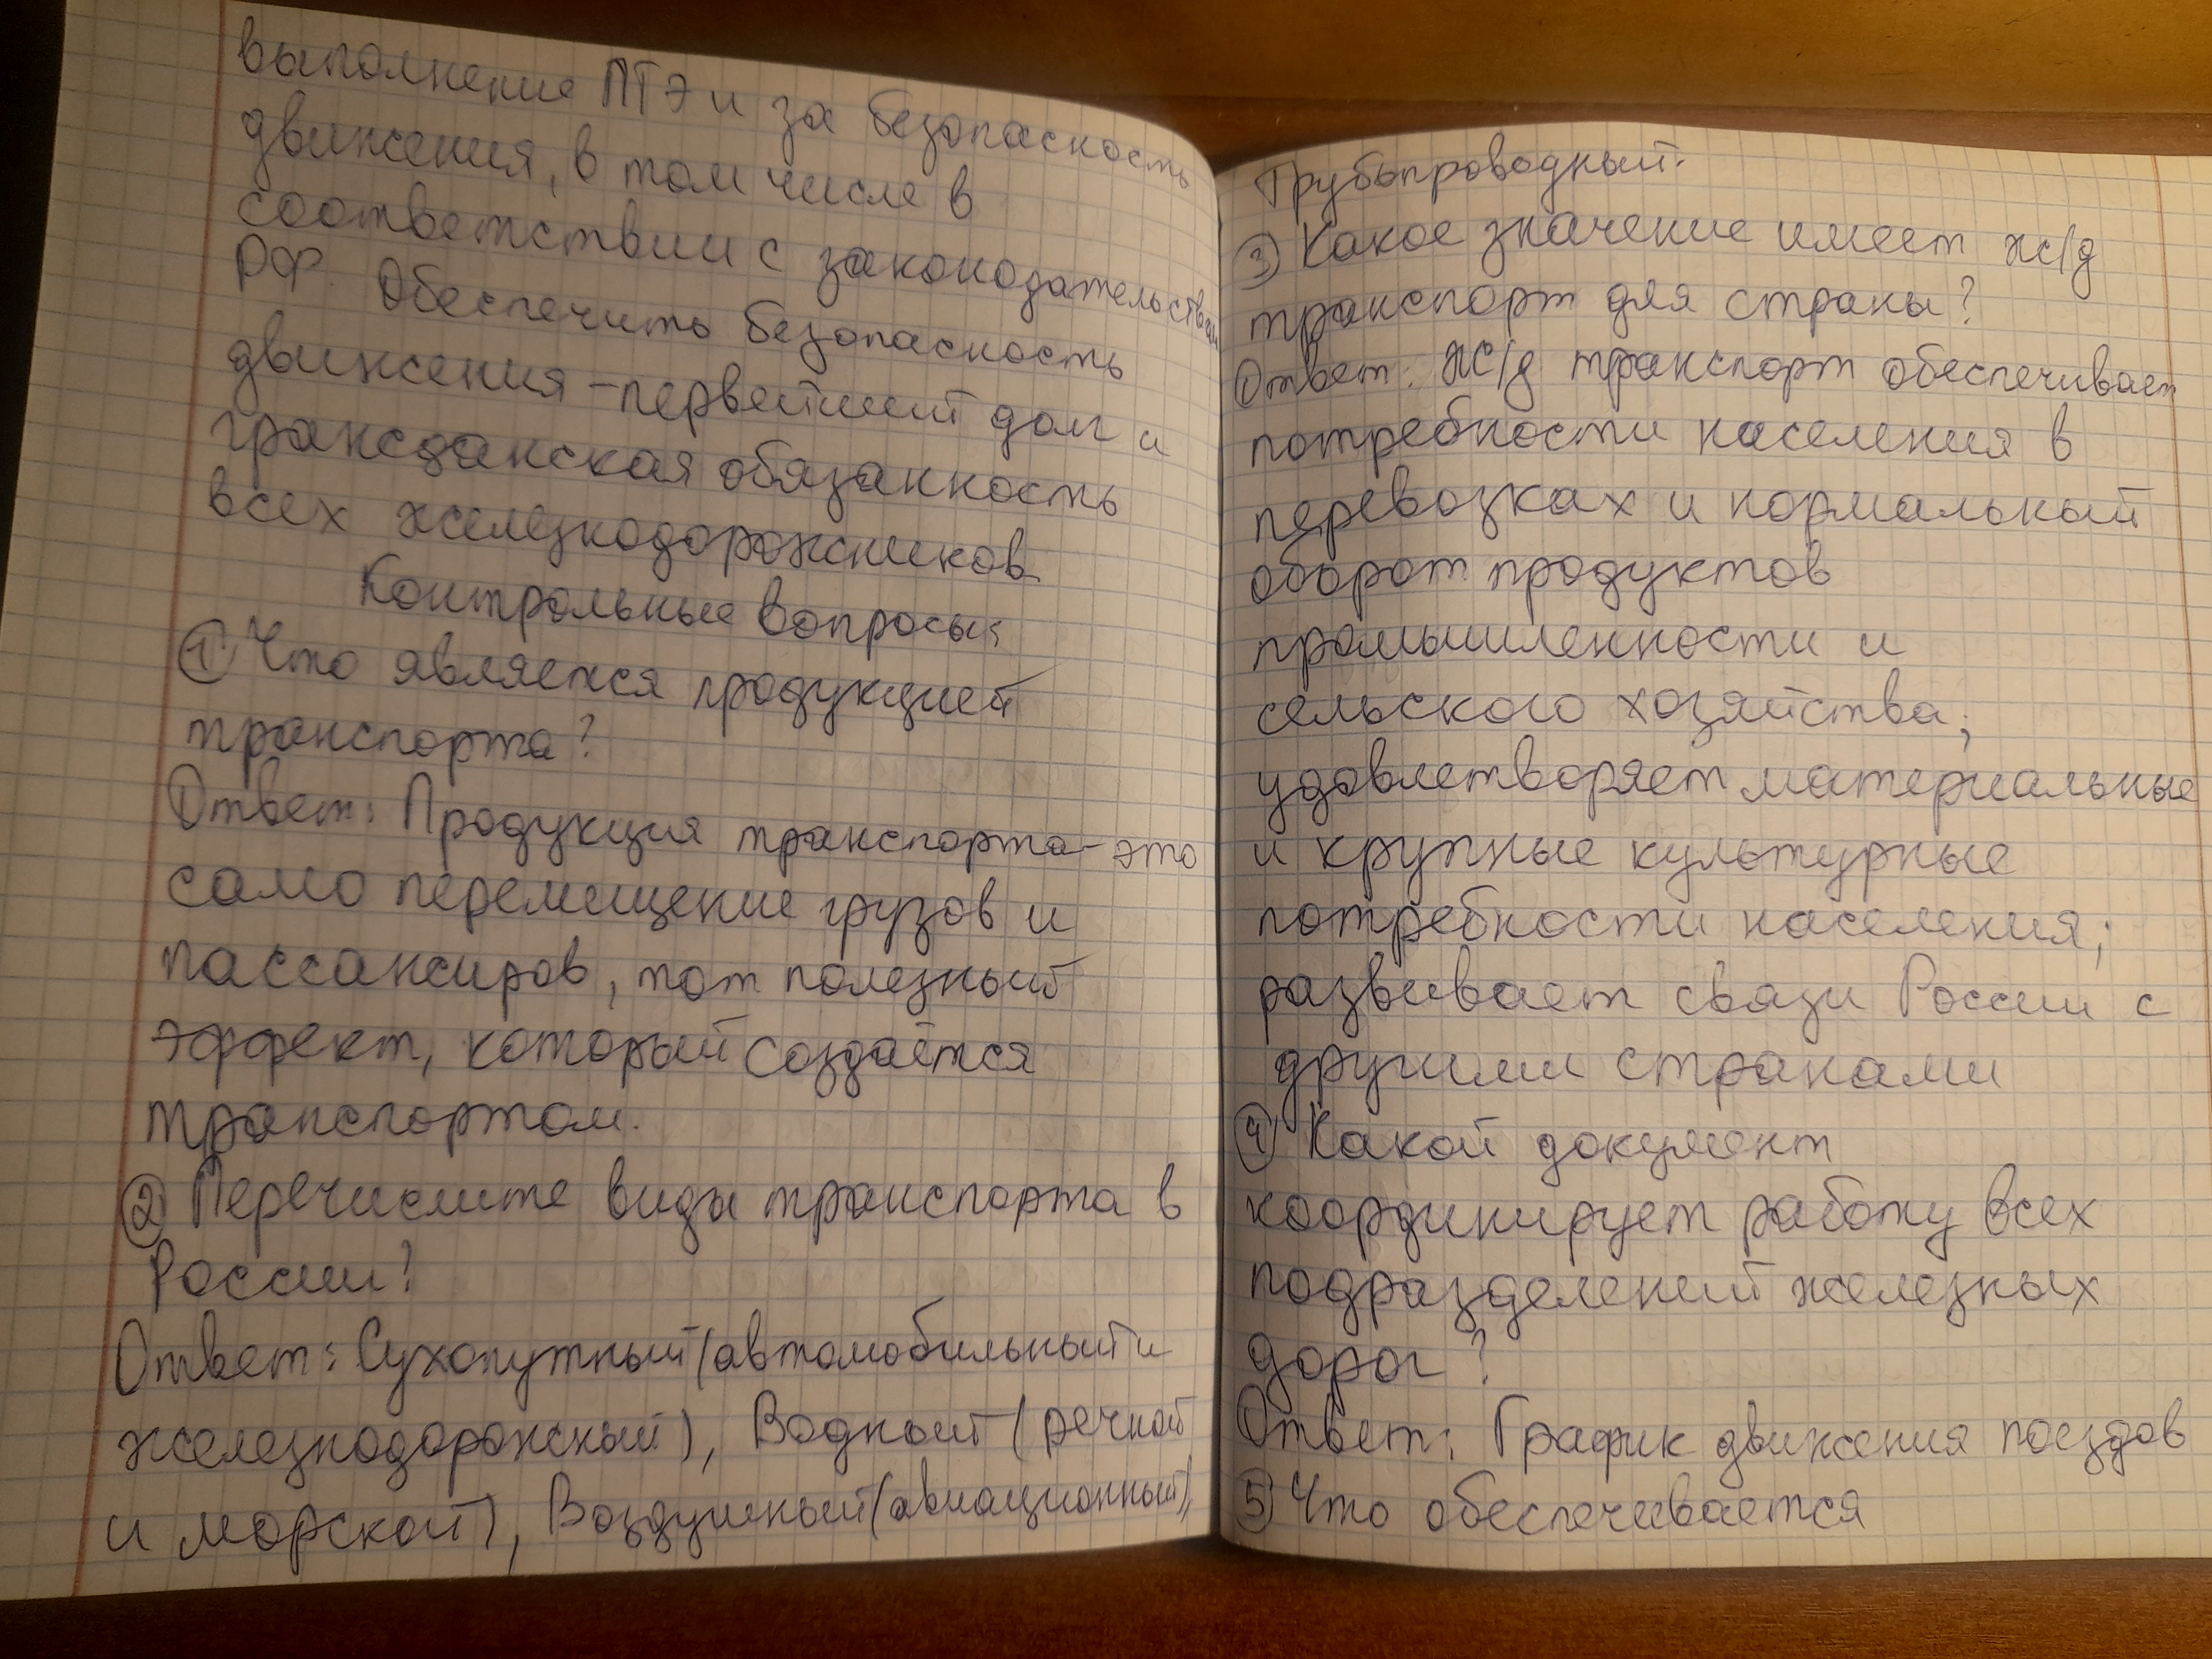 выполнение ПТЭ и за безопасность
движения, в том числе в
соответствии с законодательством
РФ. Обеспечить безопасность
движения – первейший долг и
гражданская обязанность
всех железнодорожников
Контрольные вопросы:
① Что является продукцией
транспорта?
Ответ: Продукция транспорта – это
само перемещение грузов и
пассажиров, тот полезный
эффект, который создаётся
транспортом.
② Перечислите виды транспорта в
России?
Ответ: Сухопутный (автомобильный и
железнодорожный), Водный (речной
и морской), Воздушный (авиационный),
Трубопроводный.
③ Какое значение имеет ж/д
транспорт для страны?
Ответ: Ж/д транспорт обеспечивает
потребности населения в
перевозках и нормальный
оборот продуктов
промышленности и
сельского хозяйства;
удовлетворяет материальные
и крупные культурные
потребности населения;
развивает связи России с
другими странами
④ Какой документ
координирует работу всех
подразделений железных
дорог?
Ответ: График движения поездов
⑤ Что обеспечивается